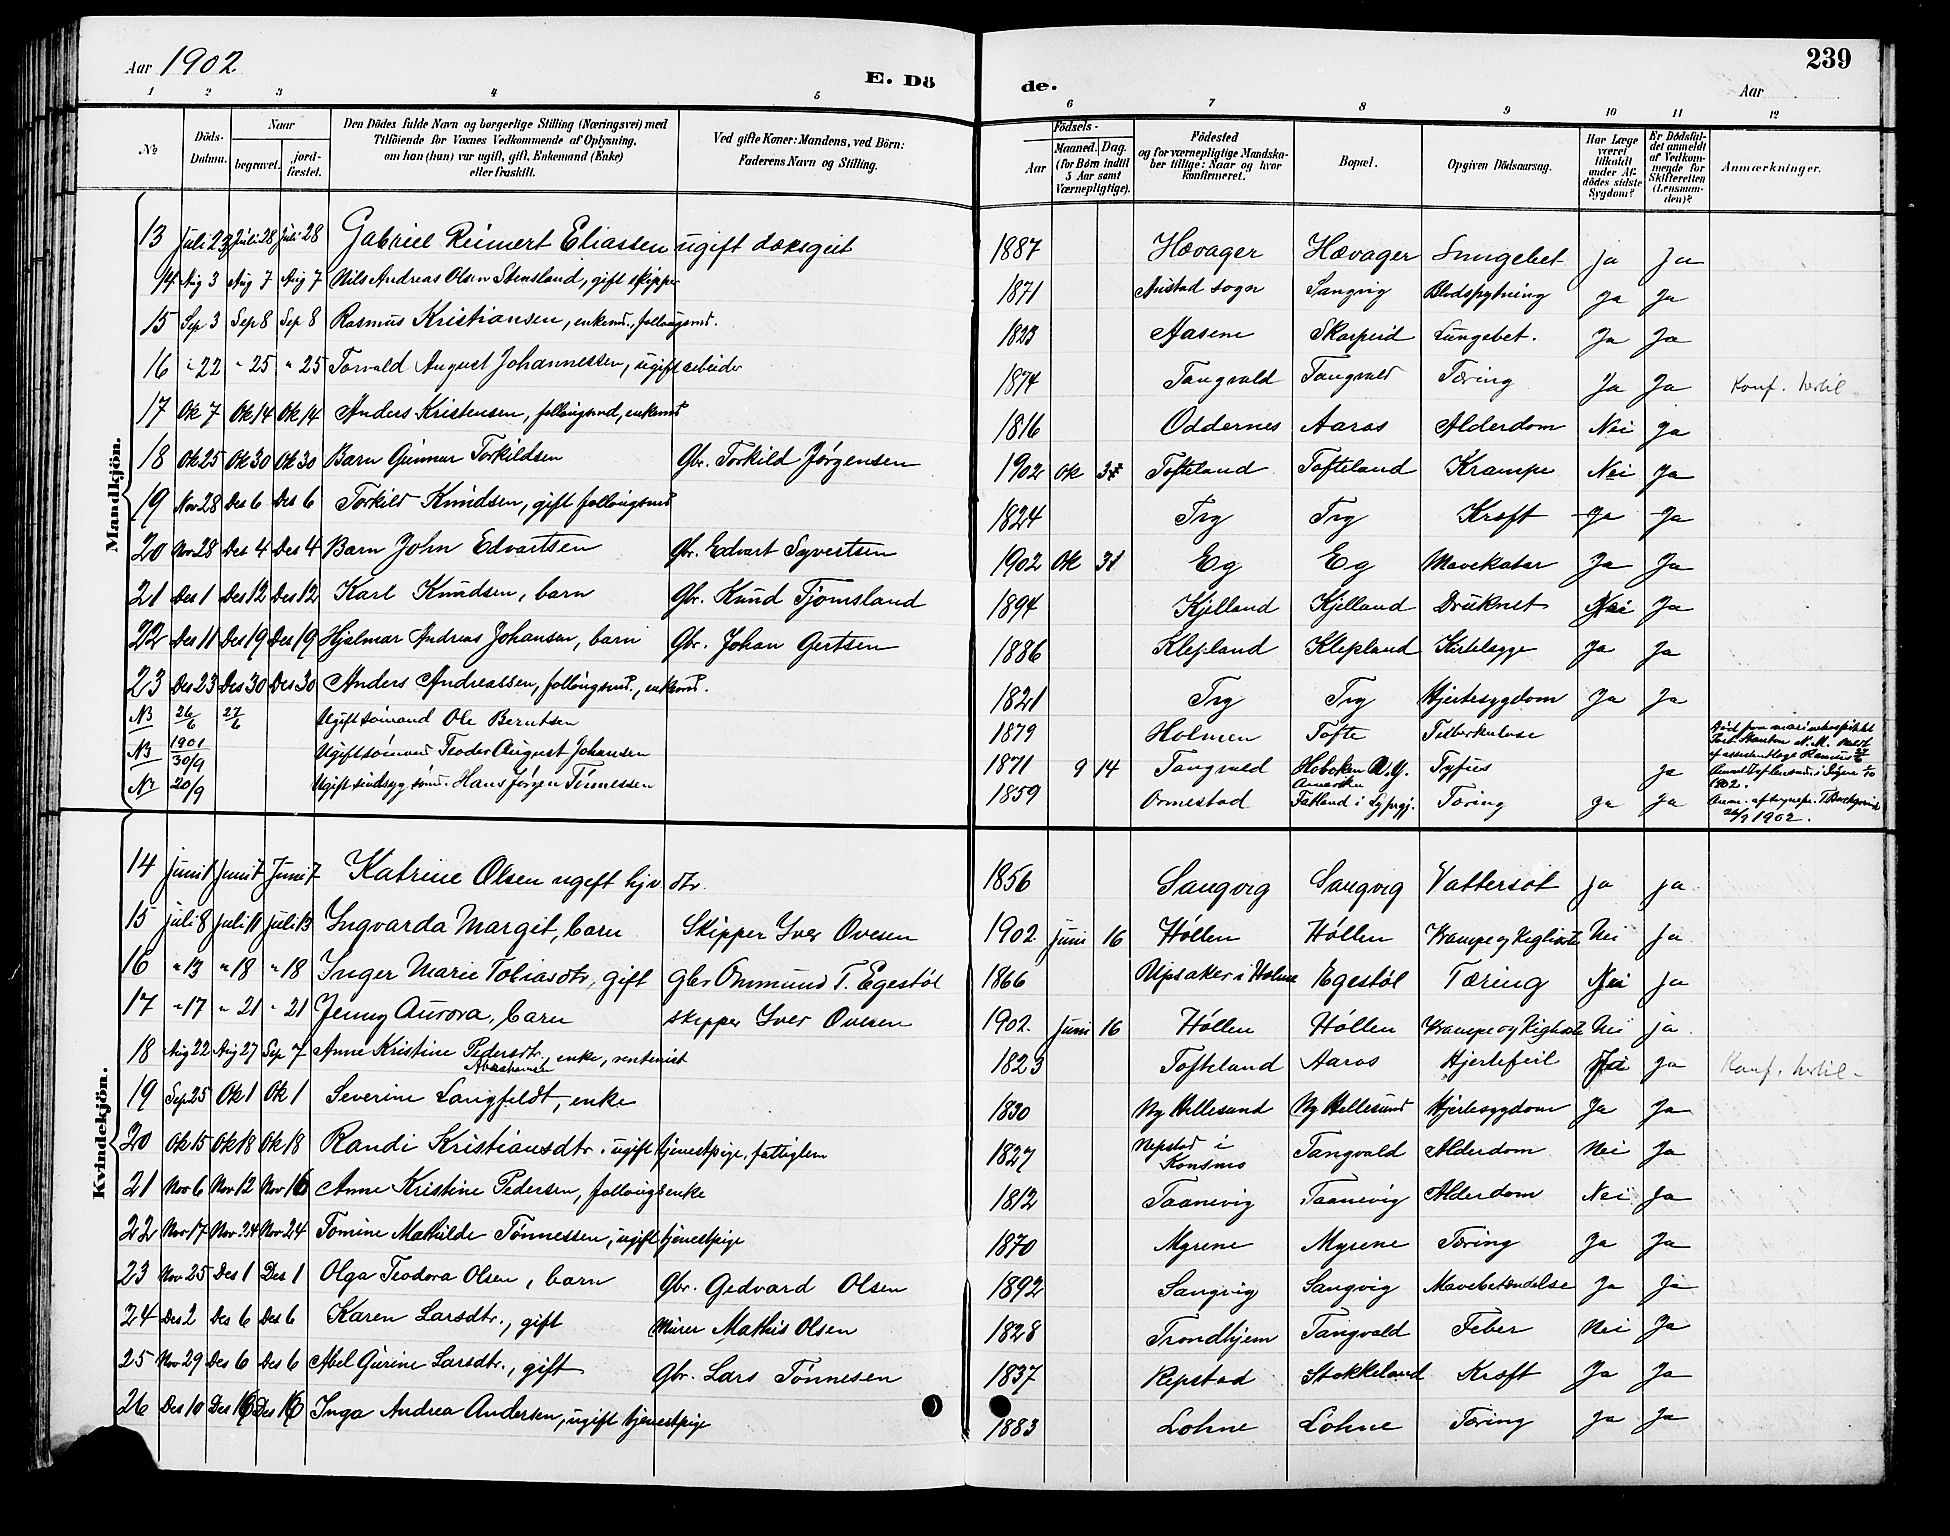 Aar 1902
E. Dö
de.
239
Aar
1 2 3 4 5 6 7 8 9 10 11 12
№
Döds-Datum.
Naar
begravet.
jord-fæstet.
Den Dödes fulde Navn og borgerlige Stilling (Næringsvei) med
Tilföiende for Voxnes Vedkommende af Oplysning,
om han (hun) var ugift, gift, Enkemand (Enke)
eller fraskilt.
Ved gifte Koner: Mandens, ved Börn:
Faderens Navn og Stilling.
Födsels-
Aar
Maaned. Dag.
(for Börn indtil
5 Aar samt
Værnepligtige).
Födested
og for værnepligtige Mandska-
ber tillige: Naar og hvor
konfirmeret.
Bopæl.
Opgiven Dödsaarsag.
Har Læge
været
tilkaldt
under Af-
dödes sidste
Sygdom?
Er Dödsfal-
det anmeldt
af Vedkom-
mende for
Skifteretten
(Lensman-
den)?
Anmærkninger.
Mandkjön.
13 Juli 23 Juli 28 Juli 28 Gabriel Reinert Eliassen ugift dæksgut 1887 Hævager Hævager Lungebet. ja Ja
14 Aug 3 Aug 7 Aug 7 Nils Andreas Olsen Stensland, gift skipper 1871 sogn Langvig Blodspytning Ja Ja
15 Sep 3 Sep 8 Sep 8 Rasmus Kristiansen, enkemd., follaugsmd. 1823 Aasene Skarpeid Lungebet. Ja Ja
16 " 22 " 25 " 25 Torvald August Johannessen, ugift arbeider 1874 Tangvald Tangvald Tæring Ja Ja Konf. hertil
17 Ok 7 Ok 14 Ok 14 Anders Kristensen, follaugsmd, enkemd 1816 Oddernes Aaros Alderdom Nei Ja
18 Ok 25 Ok 30 Ok 30 Barn Gunnar Torkildsen Gbr. Torkild Jørgensen 1902 Ok Tofteland Tofteland Krampe Nei Ja
19 Nov 28 Des 6 Des 6 Torkild Knudsen, gift follaugsmd 1824 Try Try Kræft Ja Ja
20 Nov 28 Des 4 Des 4 Barn John Edvartsen Gbr. Edvart Syvertsen 1902 Ok 31 Eg Eg Mavekatar Ja Ja
21 Des 1 Des 12 Des 12 Karl Knudsen, barn Gbr. Knud Tjomsland 1894 Kjelland Kjelland Druknet Nei Ja
22 Des 11 Des 19 Des 19 Hjalmar Andreas Johansen, barn Gbr. Johan Gertsen 1886 Klepland Klepland Kirtelsyge Ja Ja
23 Des 23 Des 30 Des 30 Anders Andreassen, follaugsmd., enkemd. 1821 Try Try Hjertesygdom Ja Ja
NB 26/6 27/6 Ugift sømand Ole Berntsen 1879 Holmen Tofte Tuberkulose
NB 1901 30/9 Ugift sømand Teodor August Johansen 1871 9 14 Tangvald Hoboken N.Y. Amerika Tyfus Ja
N 20/9 Ugift sindssyg sømd. Hans Jørgen Tønnessen 1859 Ormestad Fatland i Lyngj. Tæring Ja Ja 26/9 1902.
Kvindekjön.
14 Juni 1 Juni 7 Juni 7 Katrine Olsen ugift hjv. dtr. 1856 Langvig Langvig Vattersot ja ja
15 juli 8 juli 11 juli 13 Ingvarda Margit, barn Skipper Iver Ovesen 1902 juni 16 Høllen Høllen Krampe og Kighoste Nei ja
16 " 13 " 18 " 18 Inger Marie Tobiasdtr, gift gbr Ommund T. Egestøl 1866 Upsaker i Holme Egestøl Tæring Nei ja
17 " 17 " 21 " 21 Jenny Aurora, barn skipper Iver Ovesen 1902. juni 16 Høllen Høllen Krampe og Kighoste Nei ja
18 Aug 22 Aug 27 Sep 7 Anne Kristine Pedersdtr. Abrahamsen, enke, rentenist 1823 Tofteland Aaros Hjertefeil ja Konf. hertil
19 Sep 25 Ok 1 Ok 1 Severine Langfeldt, enke 1830 Ny Hellesund Ny Hellesund Hjertesygdom Ja Ja
20 Ok 15 Ok 18 Ok 18 Randi Kristiansdtr. ugift tjenestpige, fattiglem 1827 Repstad i Konsmo Tangvald Alderdom Nei Ja
21 Nov 6 Nov 12 Nov 16 Anne Kristine Pedersen, follaugsenke 1812 Taanevig Taanevig Alderdom Nei Ja
22 Nov 17 Nov 24 Nov 24 Tomine Mathilde Tønnessen, ugift tjenestpige 1870 Myrene Myrene Tæring Ja Ja
23 Nov 25 Des 1 Des 1 Olga Teodora Olsen, barn Gbr. Gedvard Olsen 1892 Langvig Langvig Mavebetændelse Ja Ja
24 Des 2 Des 6 Des 6 Karen Larsdtr., gift Murer Mathis Olsen 1828 Trondhjem Tangvald Feber Nei Ja
25 Nov 29 Des 6 Des 6 Abel Gurine Larsdtr., gift Gbr. Lars Tønnesen 1837 Repstad Stokkeland Kræft Ja Ja
26 Des 10 Des 16 Des 16 Inga Andrea Andersen, ugift tjenestpige 1883 Lohne Lohne Tæring Ja Ja